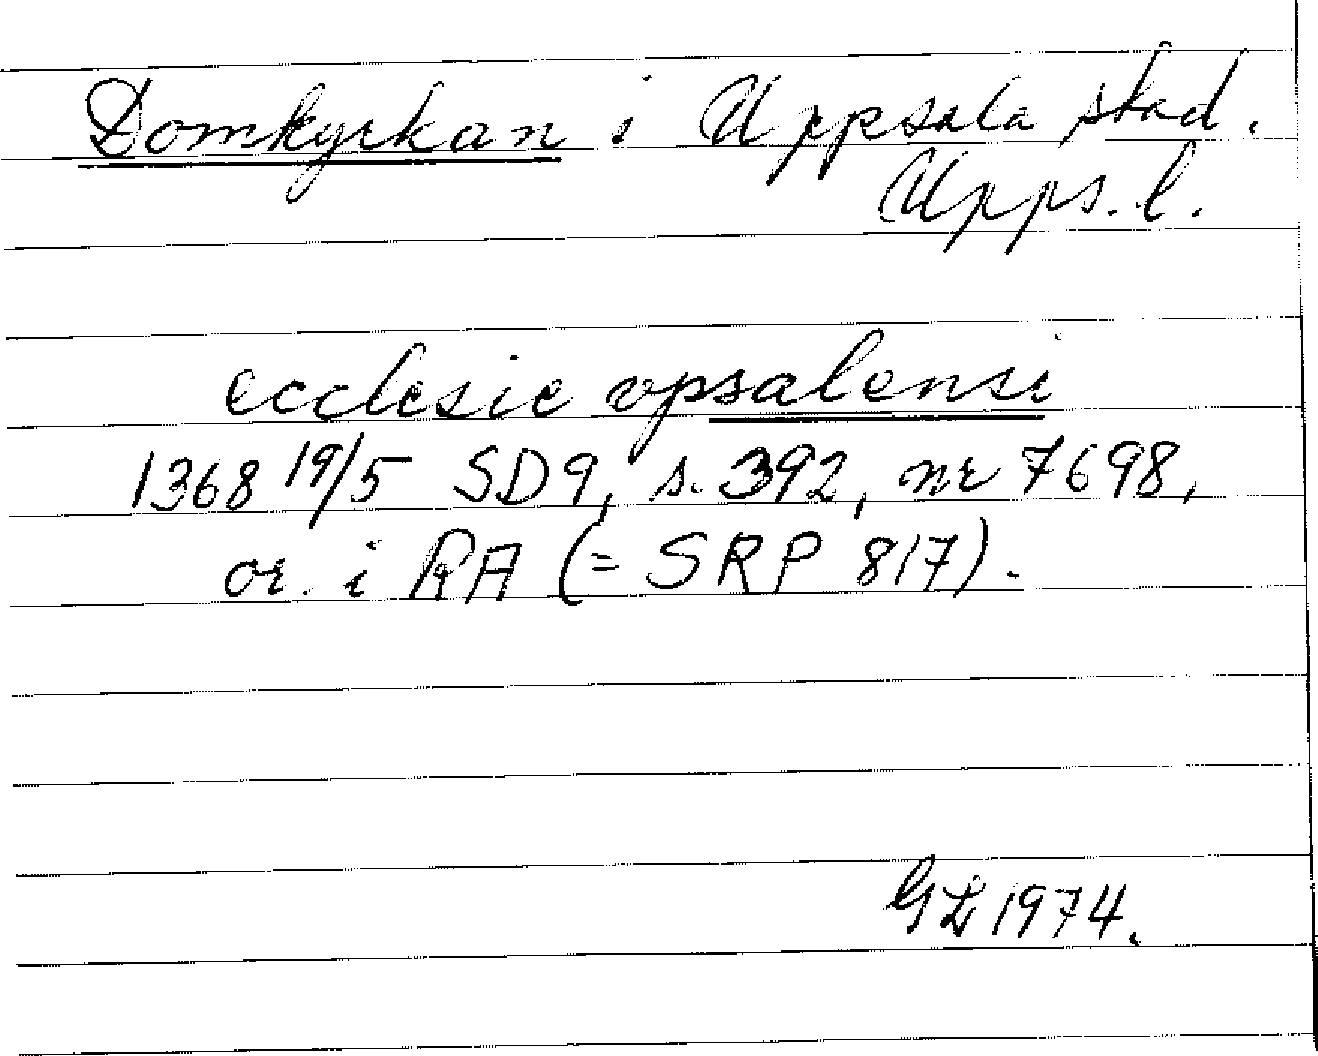 Domkyrkan i Uppsala stad.
Upps. l.
ecclesie vpsalensi
1368 19/5 SD9, s. 392, nr 7698,
or. i RA (= SRP 817).
GL 1974.